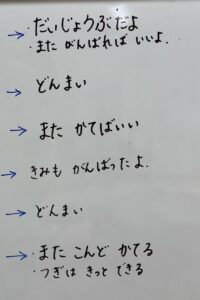 → ・だいじょうぶだよ
・また がんばれば いいよ.
→ どんまい
→ また かてばいい
→ きみも がんばったよ.
→ どんまい
→ ・また こんど かてる
・つぎは きっと できる